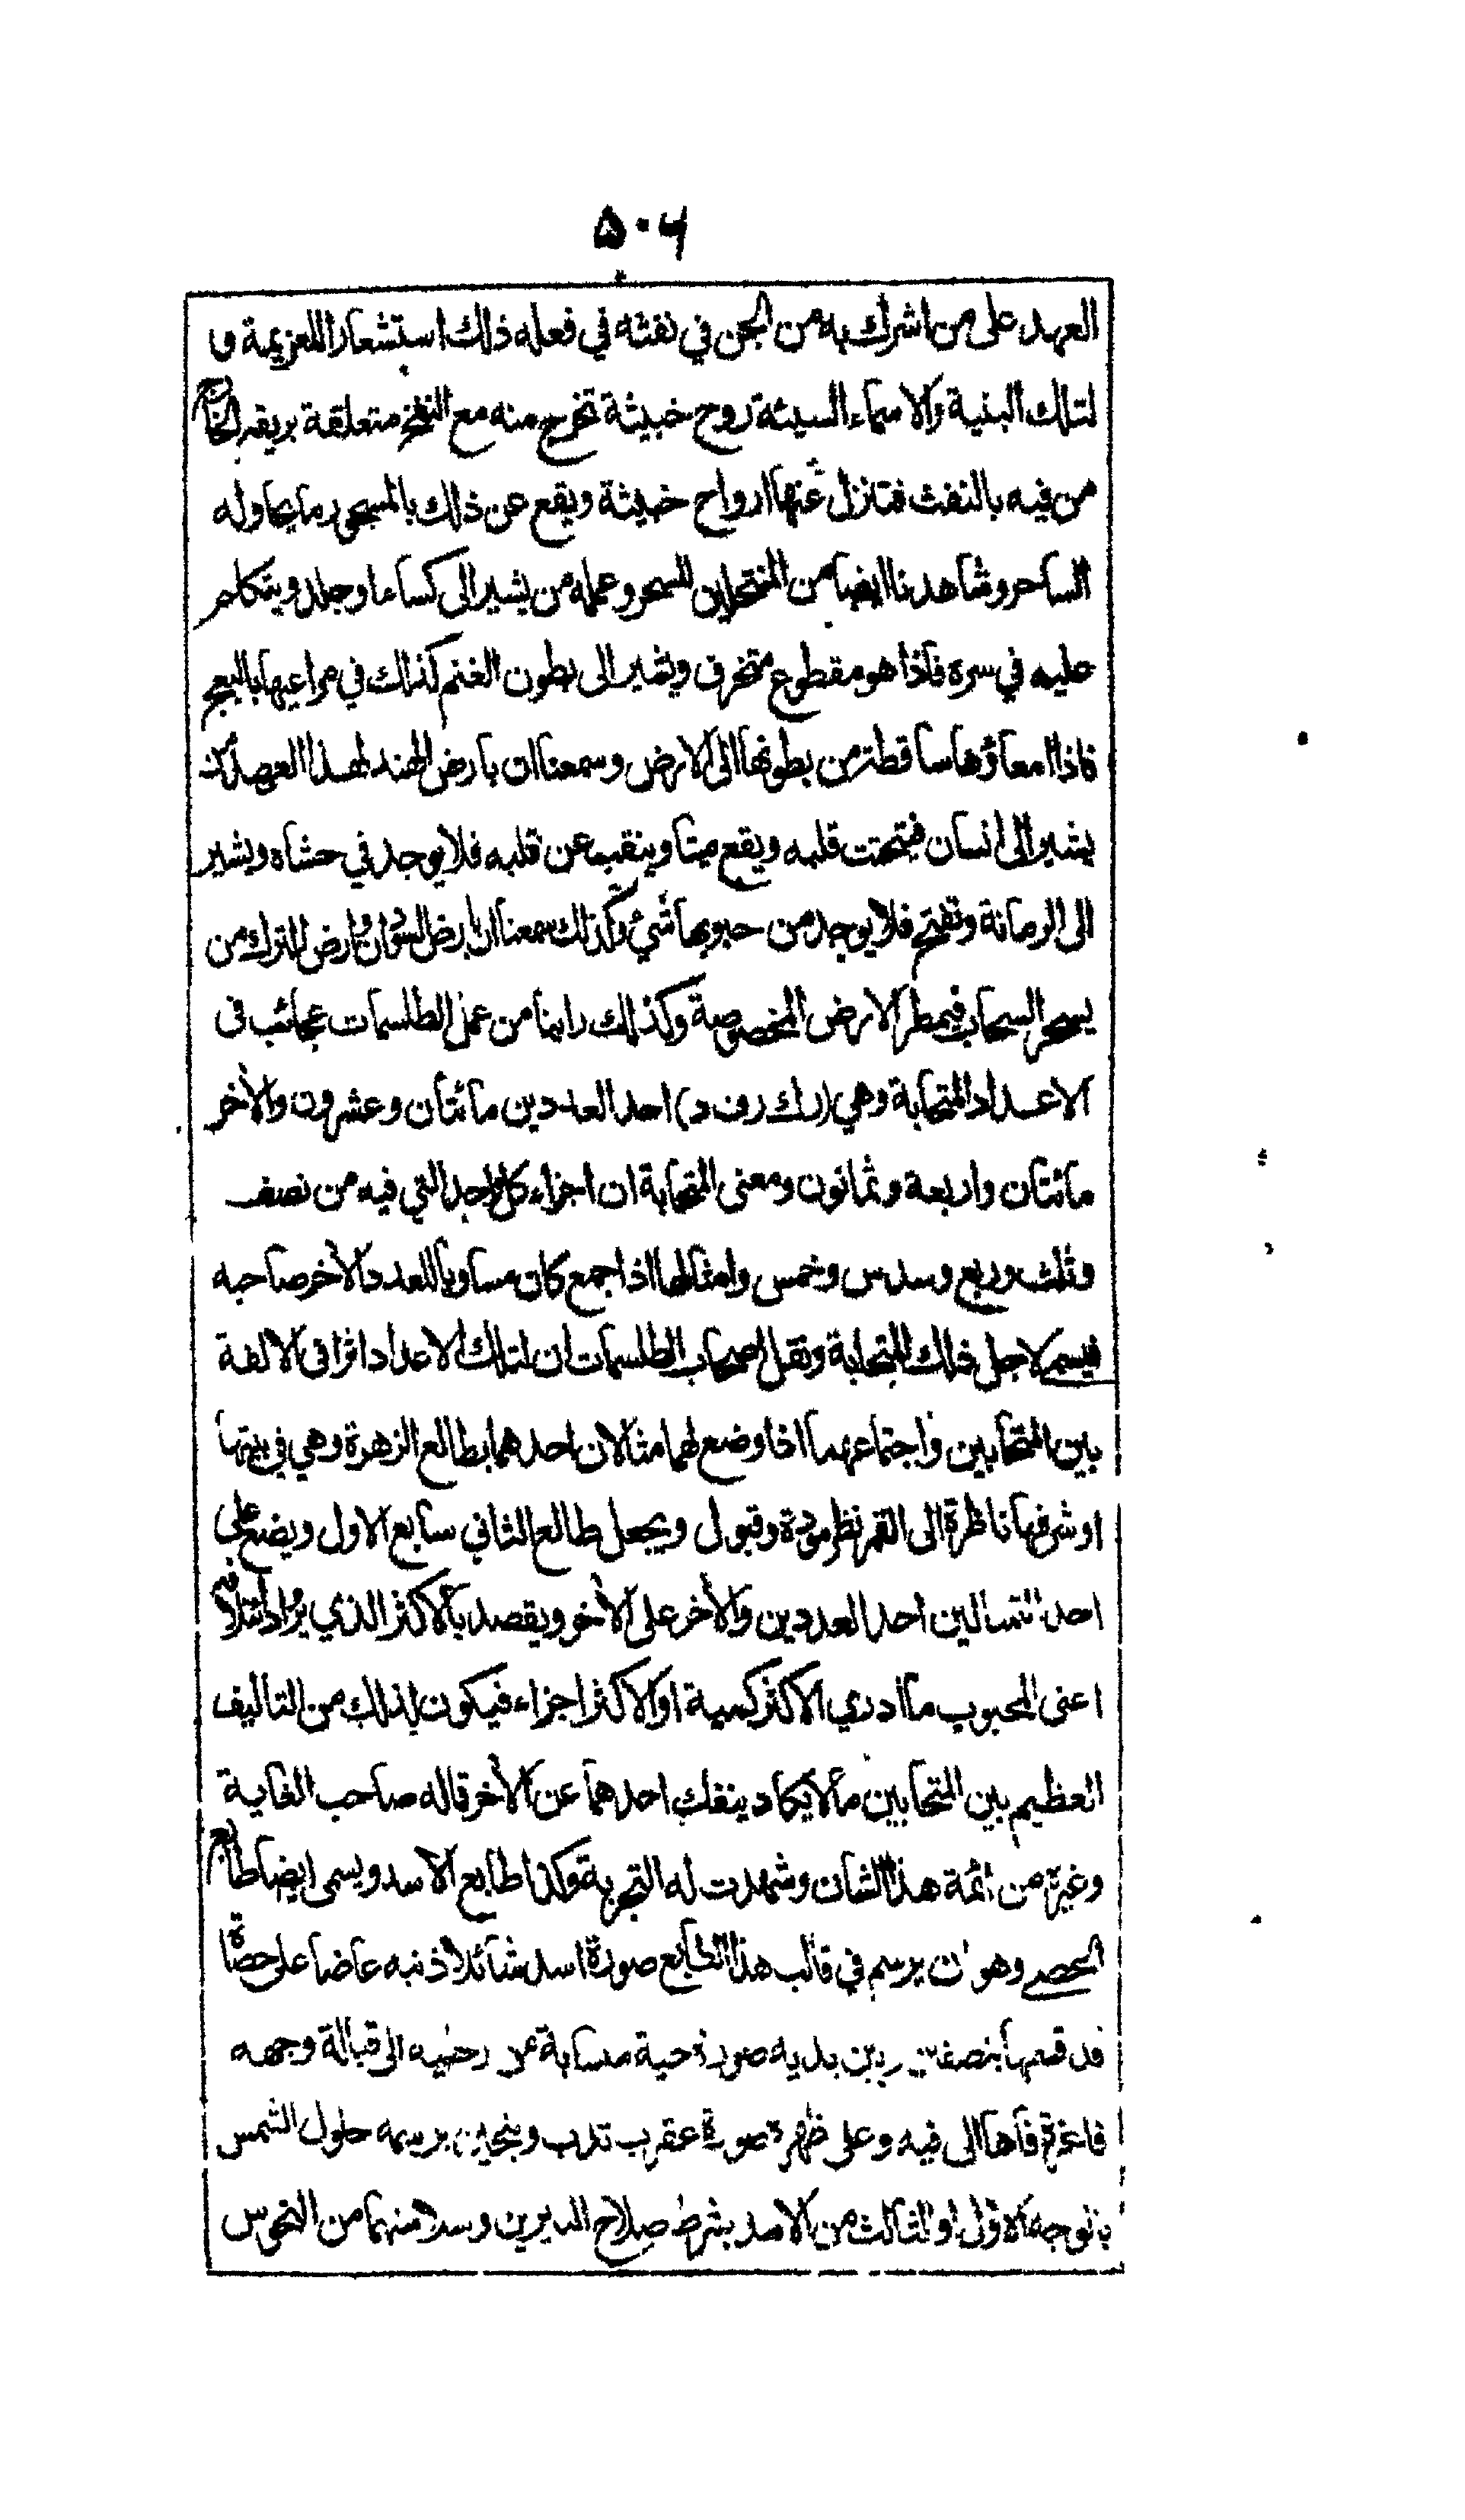 ٥٠٦
العهد على من اشرك به من الجن في نفثه في فعله ذلك استشعارا للعزيمة و
لتلك البنية والاسماء السيئة روح خبيثة تخرج منه مع النفخ متعلقة بريقه الخارج
من فيه بالنفث فتنزل عنها ارواح خبيثة ويقع عن ذلك بالمسحور ما يحاوله
الساحر وشاهدنا ايضا من المنتحلين للسحر وعمله من يشير الى كساء او جلد ويتكلم
عليه في سره فاذا هو مقطوع متخرق ويشير الى بطون الغنم كذلك في مراعيها بالبعج
فاذا امعاؤها ساقطة من بطونها الى الارض وسمعنا ان بارض الهند لهذا العهد من
يشير الى انسان فيتحتت قلبه ويقع ميتا وينقب عن قلبه فلا يوجد في حشاه ويشير
الى الرمانة وتفتح فلا يوجد من حبوبها شيء وكذلك سمعنا ان بارض السودان وارض الترك من
يسحر السحاب فيمطر الارض المخصوصة وكذلك راينا من عمل الطلسمات عجائب في
الاعداد المتحابة وهي (رك رف د) احد العددين مائتان وعشرون والآخر
مائتان واربعة وثمانون ومعنى المتحابة ان اجزاء كل واحد التي فيه من نصف
وثلث وربع وسدس وخمس وامثالها اذا جمع كان مساويا للعدد الآخر صاحبه
فيسمى لاجل ذلك المتحابة ونقل اصحاب الطلسمات ان لتلك الاعداد اثرا في الالفة
بين المتحابين واجتماعهما اذا وضع لهما مثالان احدهما بطالع الزهرة وهي في بيتها
او شرفها ناظرة الى القمر نظر مودة وقبول ويجعل طالع الثاني سابع الاول ويضع على
احد التمثالين احد العددين والآخر على الآخر ويقصد بالاكثر الذي يراد ائتلافه
اعنى المحبوب ما ادري الاكثر كمية او الاكثر اجزاء فيكون لذلك من التاليف
العظيم بين المتحابين ما لا يكاد ينفك احدهما عن الآخر قاله صاحب الغاية
وغيره من ائمة هذا الشان وشهدت له التجربة وكذا طابع الاسد ويسمى ايضا طابع
الحصى وهو ان يرسم في قالب هذا الطابع صورة اسد شائلا ذنبه عاضا على حصاة
قد قسمها بنصفين وبين يديه صورة حية منسابة من رجليه الى قبالة وجهه
فاغرة فاها الى فيه وعلى ظهره صورة عقرب تدب ويتحين برسمه حلول الشمس
بالوجه الاول او الثالث من الاسد بشرط صلاح النيرين وسلامتهما من النحوس